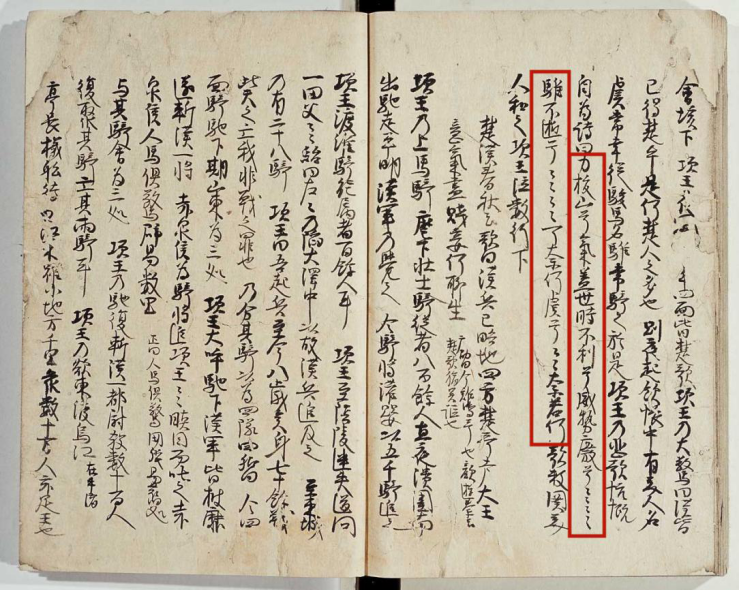 會垓下 項王 四面皆楚歌項王乃大驚曰漢皆
已得楚乎是何楚人之多也 則夜起飲帳中有美人名
虞常幸從駿馬名騅常騎之於是項王乃悲歌忼慨
自為詩曰力拔山兮氣蓋世時不利兮威勢廢々々々
騅不逝兮々々々々可奈何虞兮々々奈若何歌數闋美
人和之項王泣數行下
楚漢春秋云歌曰漢兵已略地四方楚歌聲大王
意氣盡賤妾何聊生
項王乃上馬騎 麾下壯士騎從者八百餘人直夜潰圍南
出馳走平明漢軍乃覺之 令騎將灌嬰以五千騎追之
項王渡淮騎能屬者百餘人耳 項王至陰陵迷失道問
一田父々紿曰左々乃陷大澤中以故漢兵追及之 至東城
乃有二十八騎 項王曰吾起兵至今八歲矣身七十餘戰
此天之亡我非戰之罪也 乃分其騎以為四隊四嚮 令四
面騎馳下期山東為三處 項王大呼馳下漢軍皆披靡
遂斬漢一將 赤泉侯為騎將追項王々々瞋目而叱之赤
泉侯人馬俱驚辟易數里 正曰人馬俱驚開張易舊處
與其騎會為三處 項王乃馳復斬漢一都尉殺數十百人
復聚其騎亡其兩騎耳 項王乃欲東渡烏江 在牛渚
亭長檥船待 曰江東雖小地方千里衆數十万人亦足王也